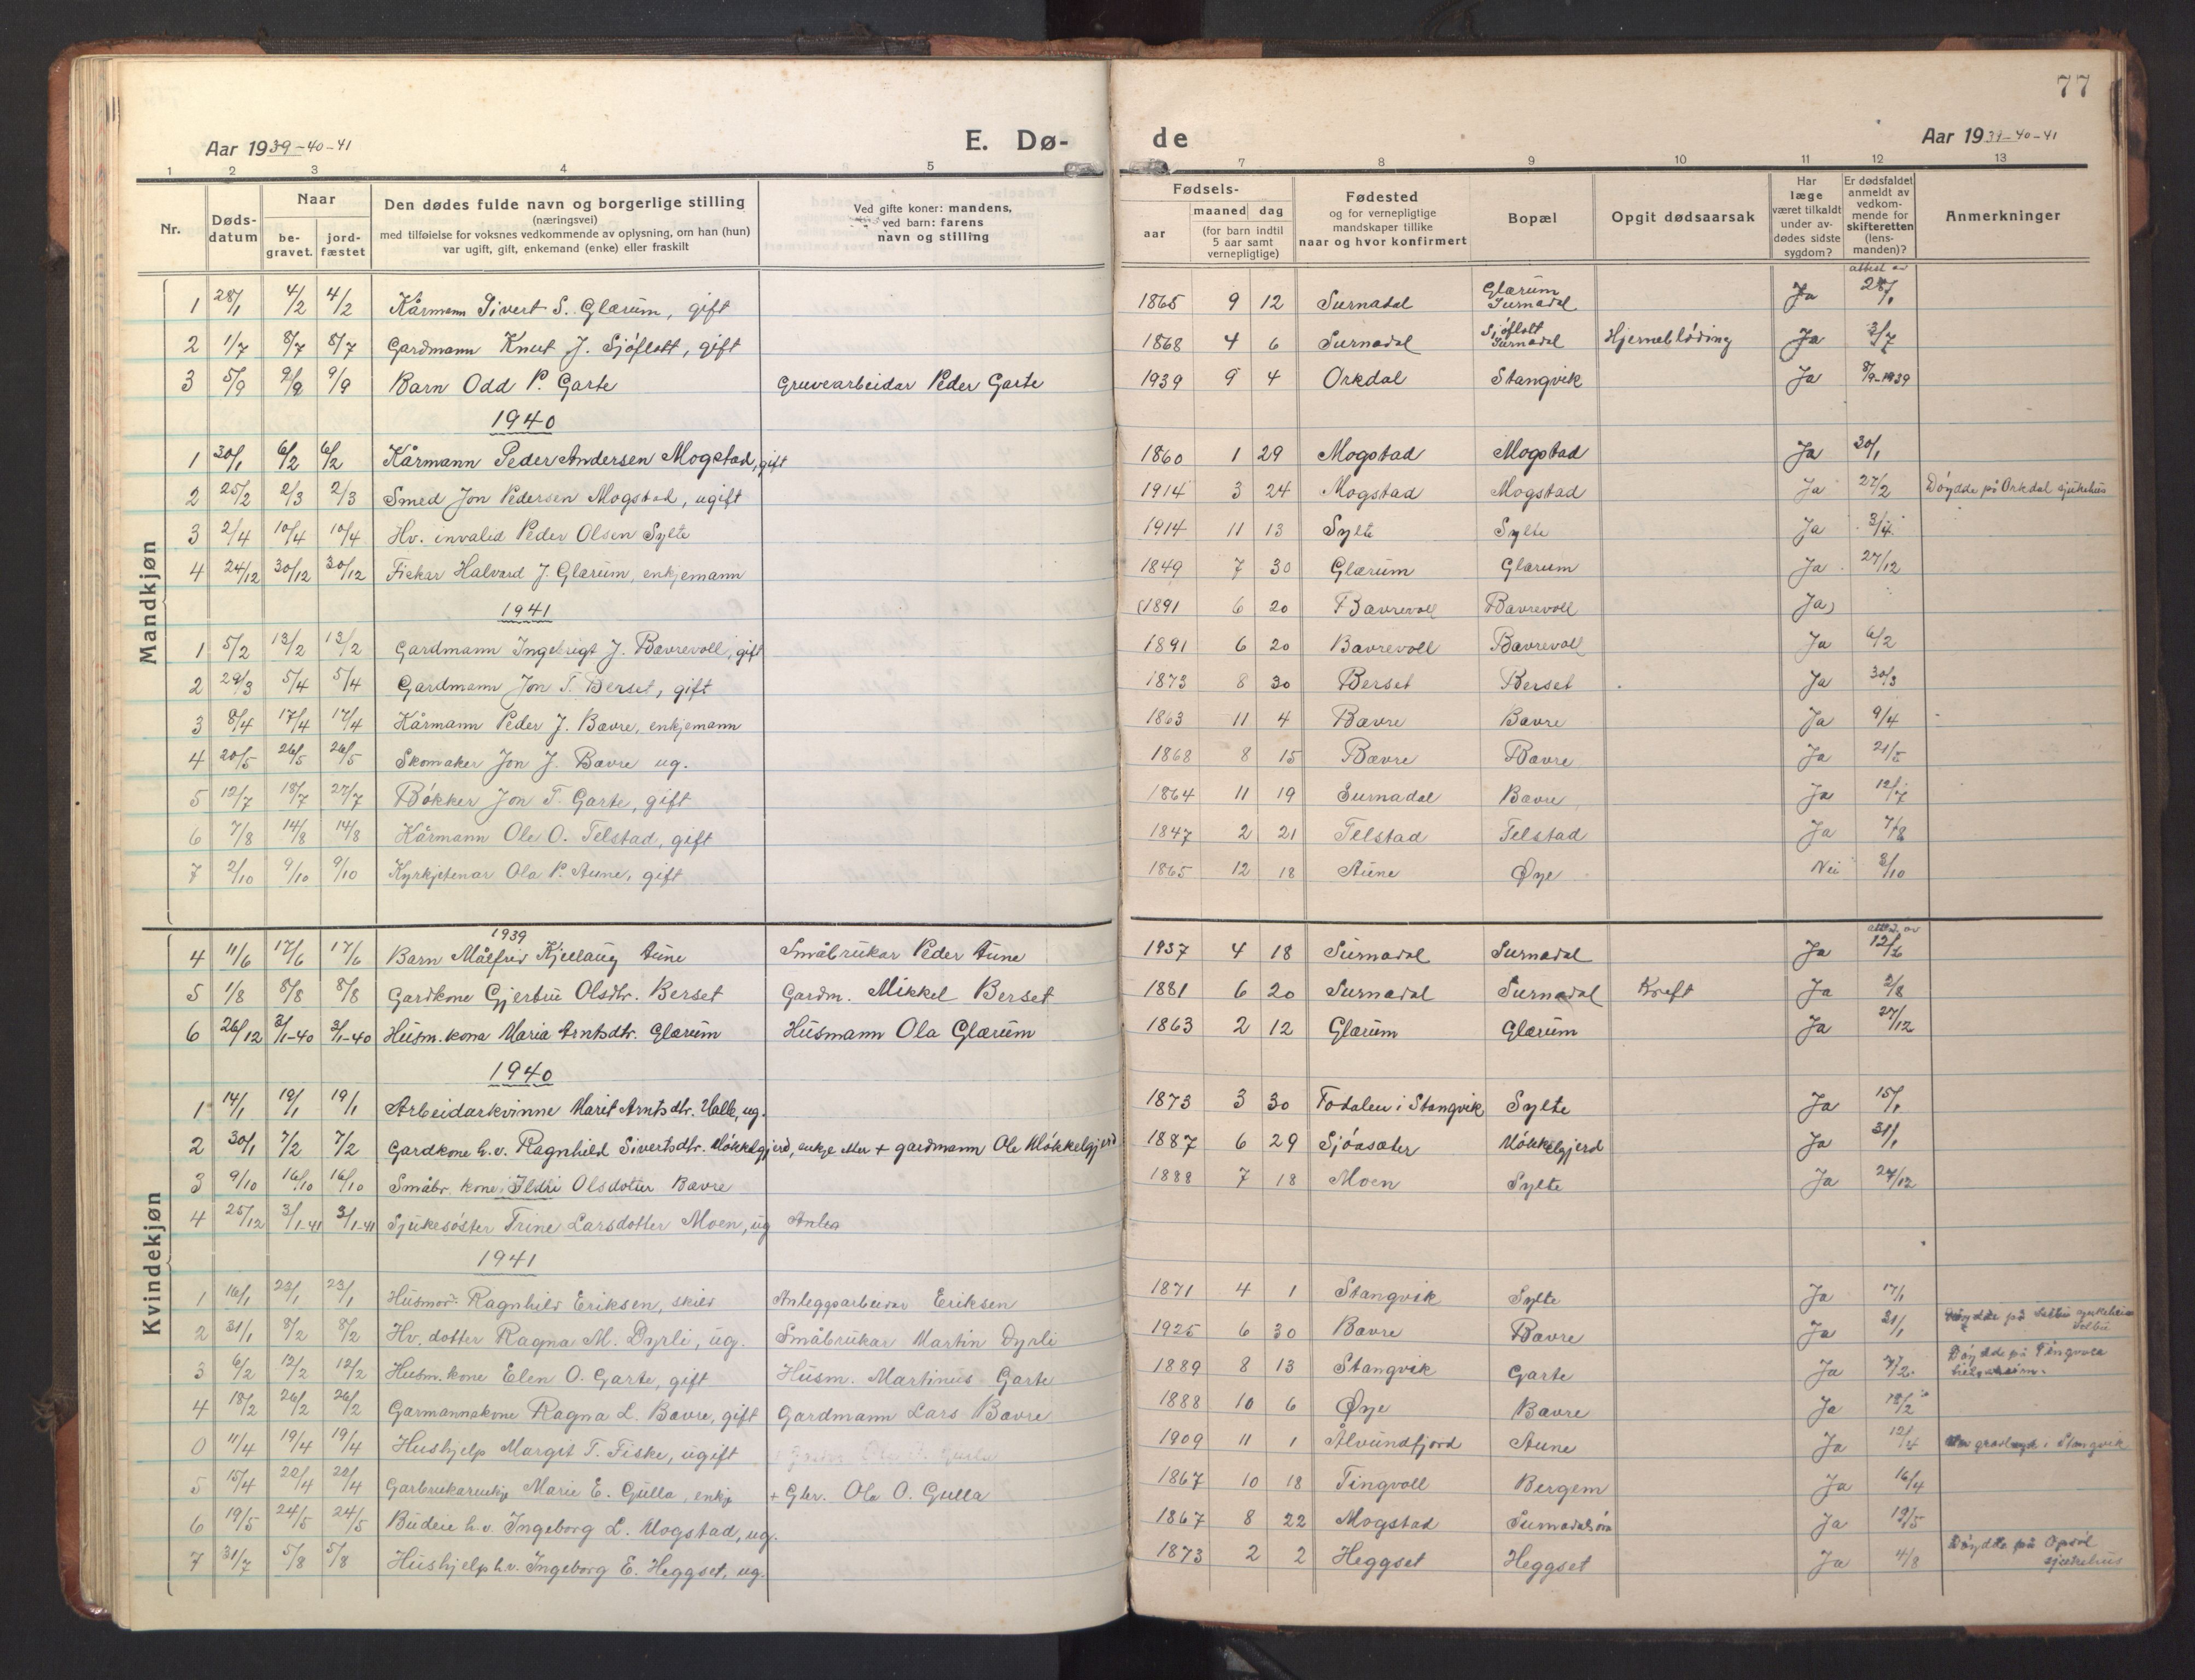 77
Aar 1939-40-41
E. Dø-
de
Aar 1939-40-41
1 2 3 4 5 7 8 9 10 11 12 13
Nr.
Døds-
datum
Naar
be-
gravet.
jord-
fæstet
Den dødes fulde navn og borgerlige stilling
(næringsvei)
med tilføielse for voksnes vedkommende av oplysning, om han (hun)
var ugift, gift, enkemand (enke) eller fraskilt
Ved gifte koner: mandens,
ved barn: farens
navn og stilling
Fødsels-
aar
maaned dag
(for barn indtil
5 aar samt
vernepligtige)
Fødested
og for vernepligtige
mandskaper tillike
naar og hvor konfirmert
Bopæl
Opgit dødsaarsak
Har
læge
været tilkaldt
under av-
dødes sidste
sygdom?
Er dødsfaldet
anmeldt av
vedkom-
mende for
skifteretten
(lens-
manden)?
Anmerkninger
Mandkjøn
1 28/1 4/2 4/2 Kårmann Sivert S. Glærum, gift 1865 9 12 Surnadal Glærum Surnadal Ja attest av 28/1
2 1/7 8/7 8/7 Gardmann Knut J. Sjøflott, gift 1868 4 6 Surnadal Sjøflott Surnadal Hjernebløding Ja 3/7
3 5/9 9/9 9/9 Barn Odd P. Garte Gruvearbeidar Peder Garte 1939 9 4 Orkdal Stangvik Ja 8/9-1939
1940
1 30/1 6/2 6/2 Kårmann Peder Andersen Mogstad, gift 1860 1 29 Mogstad Mogstad Ja 30/1
2 25/2 2/3 2/3 Smed Jon Pedersen Mogstad, ugift 1914 3 24 Mogstad Mogstad Ja 27/2 Døydde på Orkdal sjukehus
3 2/4 10/4 10/4 Hv. invalid Peder Olsen Sylte 1914 11 13 Sylte Sylte Ja 3/4
4 24/12 30/12 30/12 Fiskar Halvard J. Glærum, enkjemann 1849 7 30 Glærum Glærum Ja 27/12
1941 (1891 6 20 Bævrevoll Bævrevoll Ja)
1 5/2 13/2 13/2 Gardmann Ingebrigt J. Bævrevoll, gift 1891 6 20 Bævrevoll Bævrevoll Ja 6/2
2 29/3 5/4 5/4 Gardmann Jon T. Berset, gift 1873 8 30 Berset Berset Ja 30/3
3 8/4 17/4 17/4 Kårmann Peder J. Bævre, enkjemann 1863 11 4 Bævre Bævre Ja 9/4
4 20/5 26/5 26/5 Skomaker Jon J. Bævre ug. 1868 8 15 Bævre Bævre Ja 21/5
5 12/7 18/7 27/7 Bøkker Jon T. Garte, gift 1864 11 19 Surnadal Bævre Ja 12/7
6 7/8 14/8 14/8 Kårmann Ole O. Telstad, gift 1847 2 21 Telstad Telstad Ja 7/8
7 2/10 9/10 9/10 Kyrkjetenar Ola P. Aune, gift 1865 12 18 Aune Øye Nei 3/10
Kvindekjøn
1939
4 11/6 17/6 17/6 Barn Målfrid Kjellaug Aune Småbrukar Peder Aune 1937 4 18 Surnadal Surnadal Ja attest av 12/6
5 1/8 8/8 8/8 Gardkone Gjertru Olsdtr. Berset Gardm. Mikkel Berset 1881 6 20 Surnadal Surnadal Kreft Ja 2/8
6 26/12 3/1-40 3/1-40 Husm.kona Maria Arntsdtr. Glærum Husmann Ola Glærum 1863 2 12 Glærum Glærum Ja 27/12
1940
1 14/1 19/1 19/1 Arbeidarkvinne Marit Arntsdtr. Halle, ug. 1873 3 30 Todalen i Stangvik Sylte Ja 15/1
2 30/1 7/2 7/2 Gardkone h.v. Ragnhild Sivertsdtr. Møkkelgjerd, enkje etter + gardmann Ole Møkkelgjerd 1887 6 29 Sjøasæter Møkkelgjerd Ja 31/1
3 9/10 16/10 16/10 Småbr. kone Ildri Olsdotter Bævre 1888 7 18 Moen Sylte Ja 27/12
4 25/12 3/1-41 3/1-41 Sjukesøster Trine Larsdotter Moen, ug
1941
1 16/1 23/1 23/1 Husmor Ragnhild Eriksen, skild Anleggsarbeidar Eriksen 1871 4 1 Stangvik Sylte Ja 17/1
2 31/1 8/2 8/2 Hv. dotter Ragna M. Dyrli, ug. Småbrukar Martin Dyrli 1925 6 30 Bævre Bævre Ja 21/1 Døydde på Selbu sjukeheim Selbu
3 6/2 12/2 12/2 Husm.kone Elen O. Garte, gift Husm. Martinus Garte 1889 8 13 Stangvik Garte Ja 7/2 Døydde på Tingvoll
4 18/2 26/2 26/2 Garmannskone Ragna L. Bævre, gift Gardmann Lars Bævre 1888 10 6 Øye Bævre Ja 18/2
0 11/4 19/4 19/4 Hushjelp Margit T. Fiske, ugift 1909 11 1 Ålvundfjord Aune Ja 12/4 gravlagt i Stangvik
5 15/4 22/4 22/4 Garbrukarenkje Marie E. Gulla, enkje + Gbr. Ola O. Gulla 1867 10 18 Tingvoll Bergem Ja 16/4
6 19/5 24/5 24/5 Budeie h.v. Ingeborg L. Mogstad, ug. 1867 8 22 Mogstad Surnadalsøra Ja 19/5
7 31/7 5/8 5/8 Hushjelp h.v. Ingeborg E. Heggset, ug. 1873 2 2 Heggset Heggset Ja 4/8 Døydde på Opdøl sjukehus